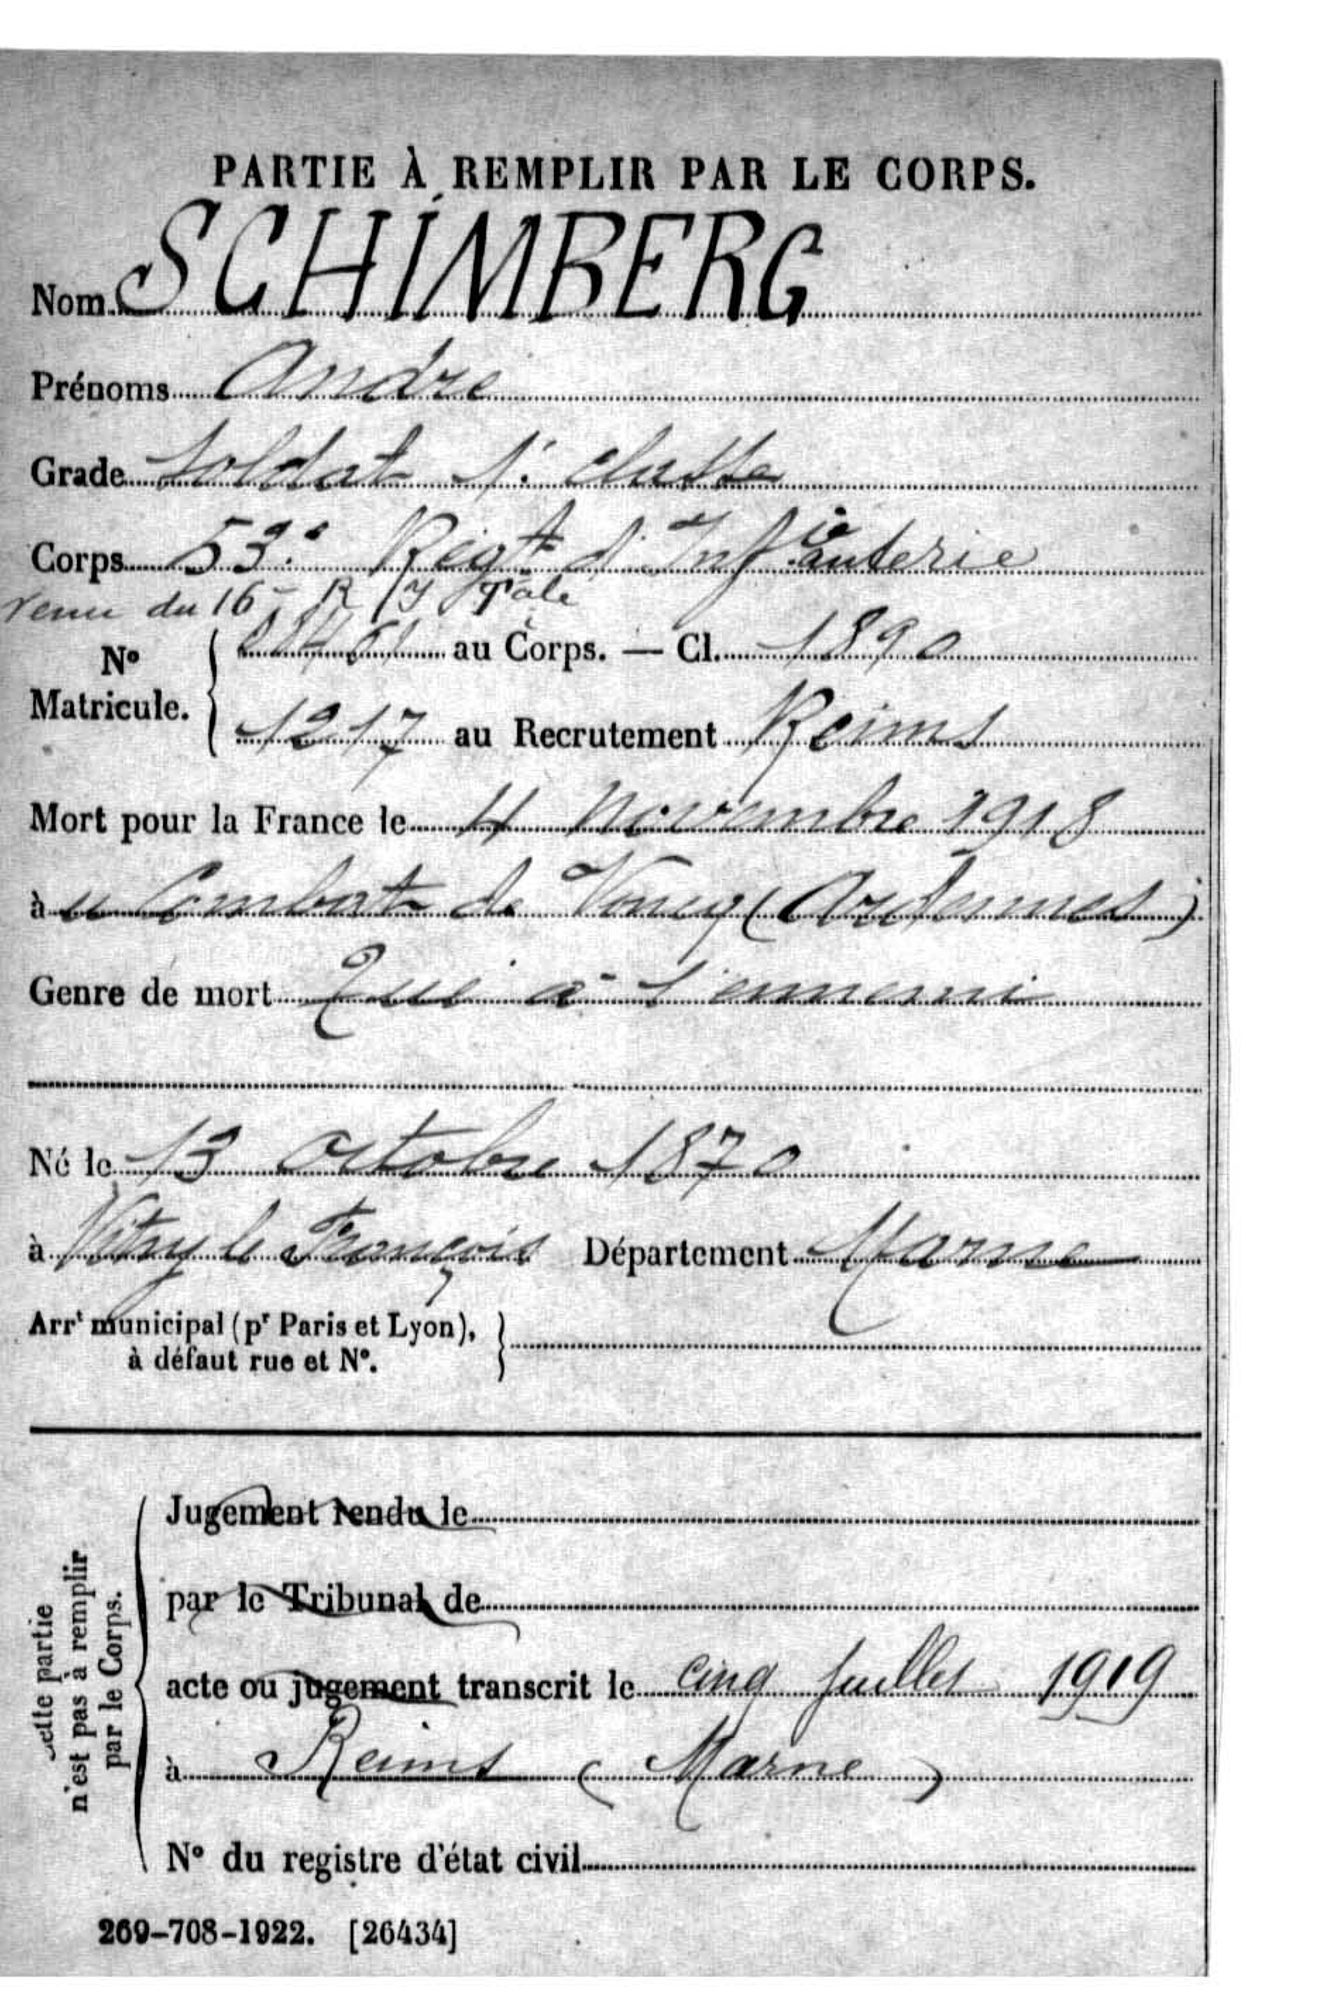 PARTIE À REMPLIR PAR LE CORPS.
Nom SCHIMBERG
Prénoms André
Grade Soldat 1e classe
Corps 53e Régt d'Infanterie
Venu du 16e R Tale
No Matricule. au Corps. — Cl. 1890
1217 au Recrutement Reims
Mort pour la France le 4 Novembre 1918
à u Combat de Voncq (Ardennes)
Genre de mort Tué à l'ennemi
Né le 13 Octobre 1870
à Vitry le François Département Marne
Arrt municipal (pr Paris et Lyon),
à défaut rue et No.
Cette partie n'est pas à remplir par le Corps.
Jugement rendu le
par le Tribunal de
acte ou jugement transcrit le cinq juillet 1919
à Reims (Marne)
No du registre d'état civil
269-708-1922. [26434]